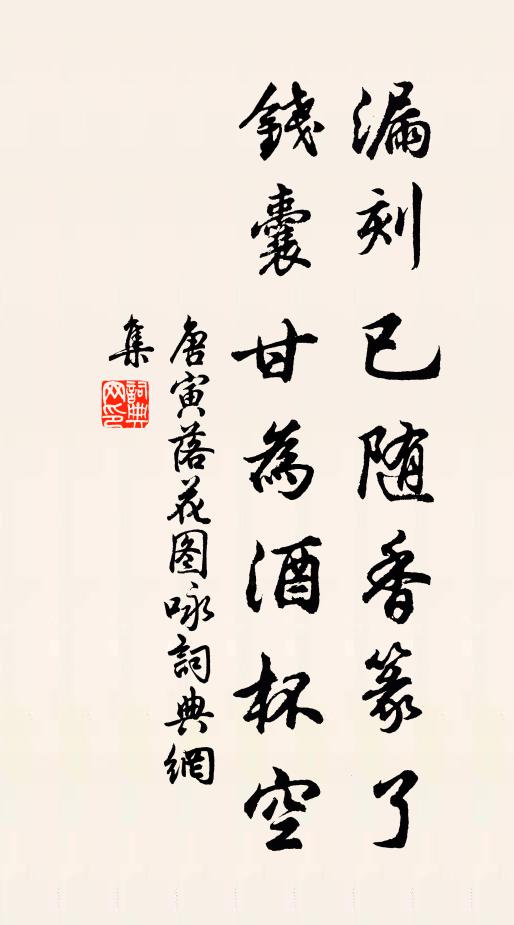 漏刻已随香篆了
錢囊甘為酒杯空
唐寅落花图咏詞典網
集
詞典網印